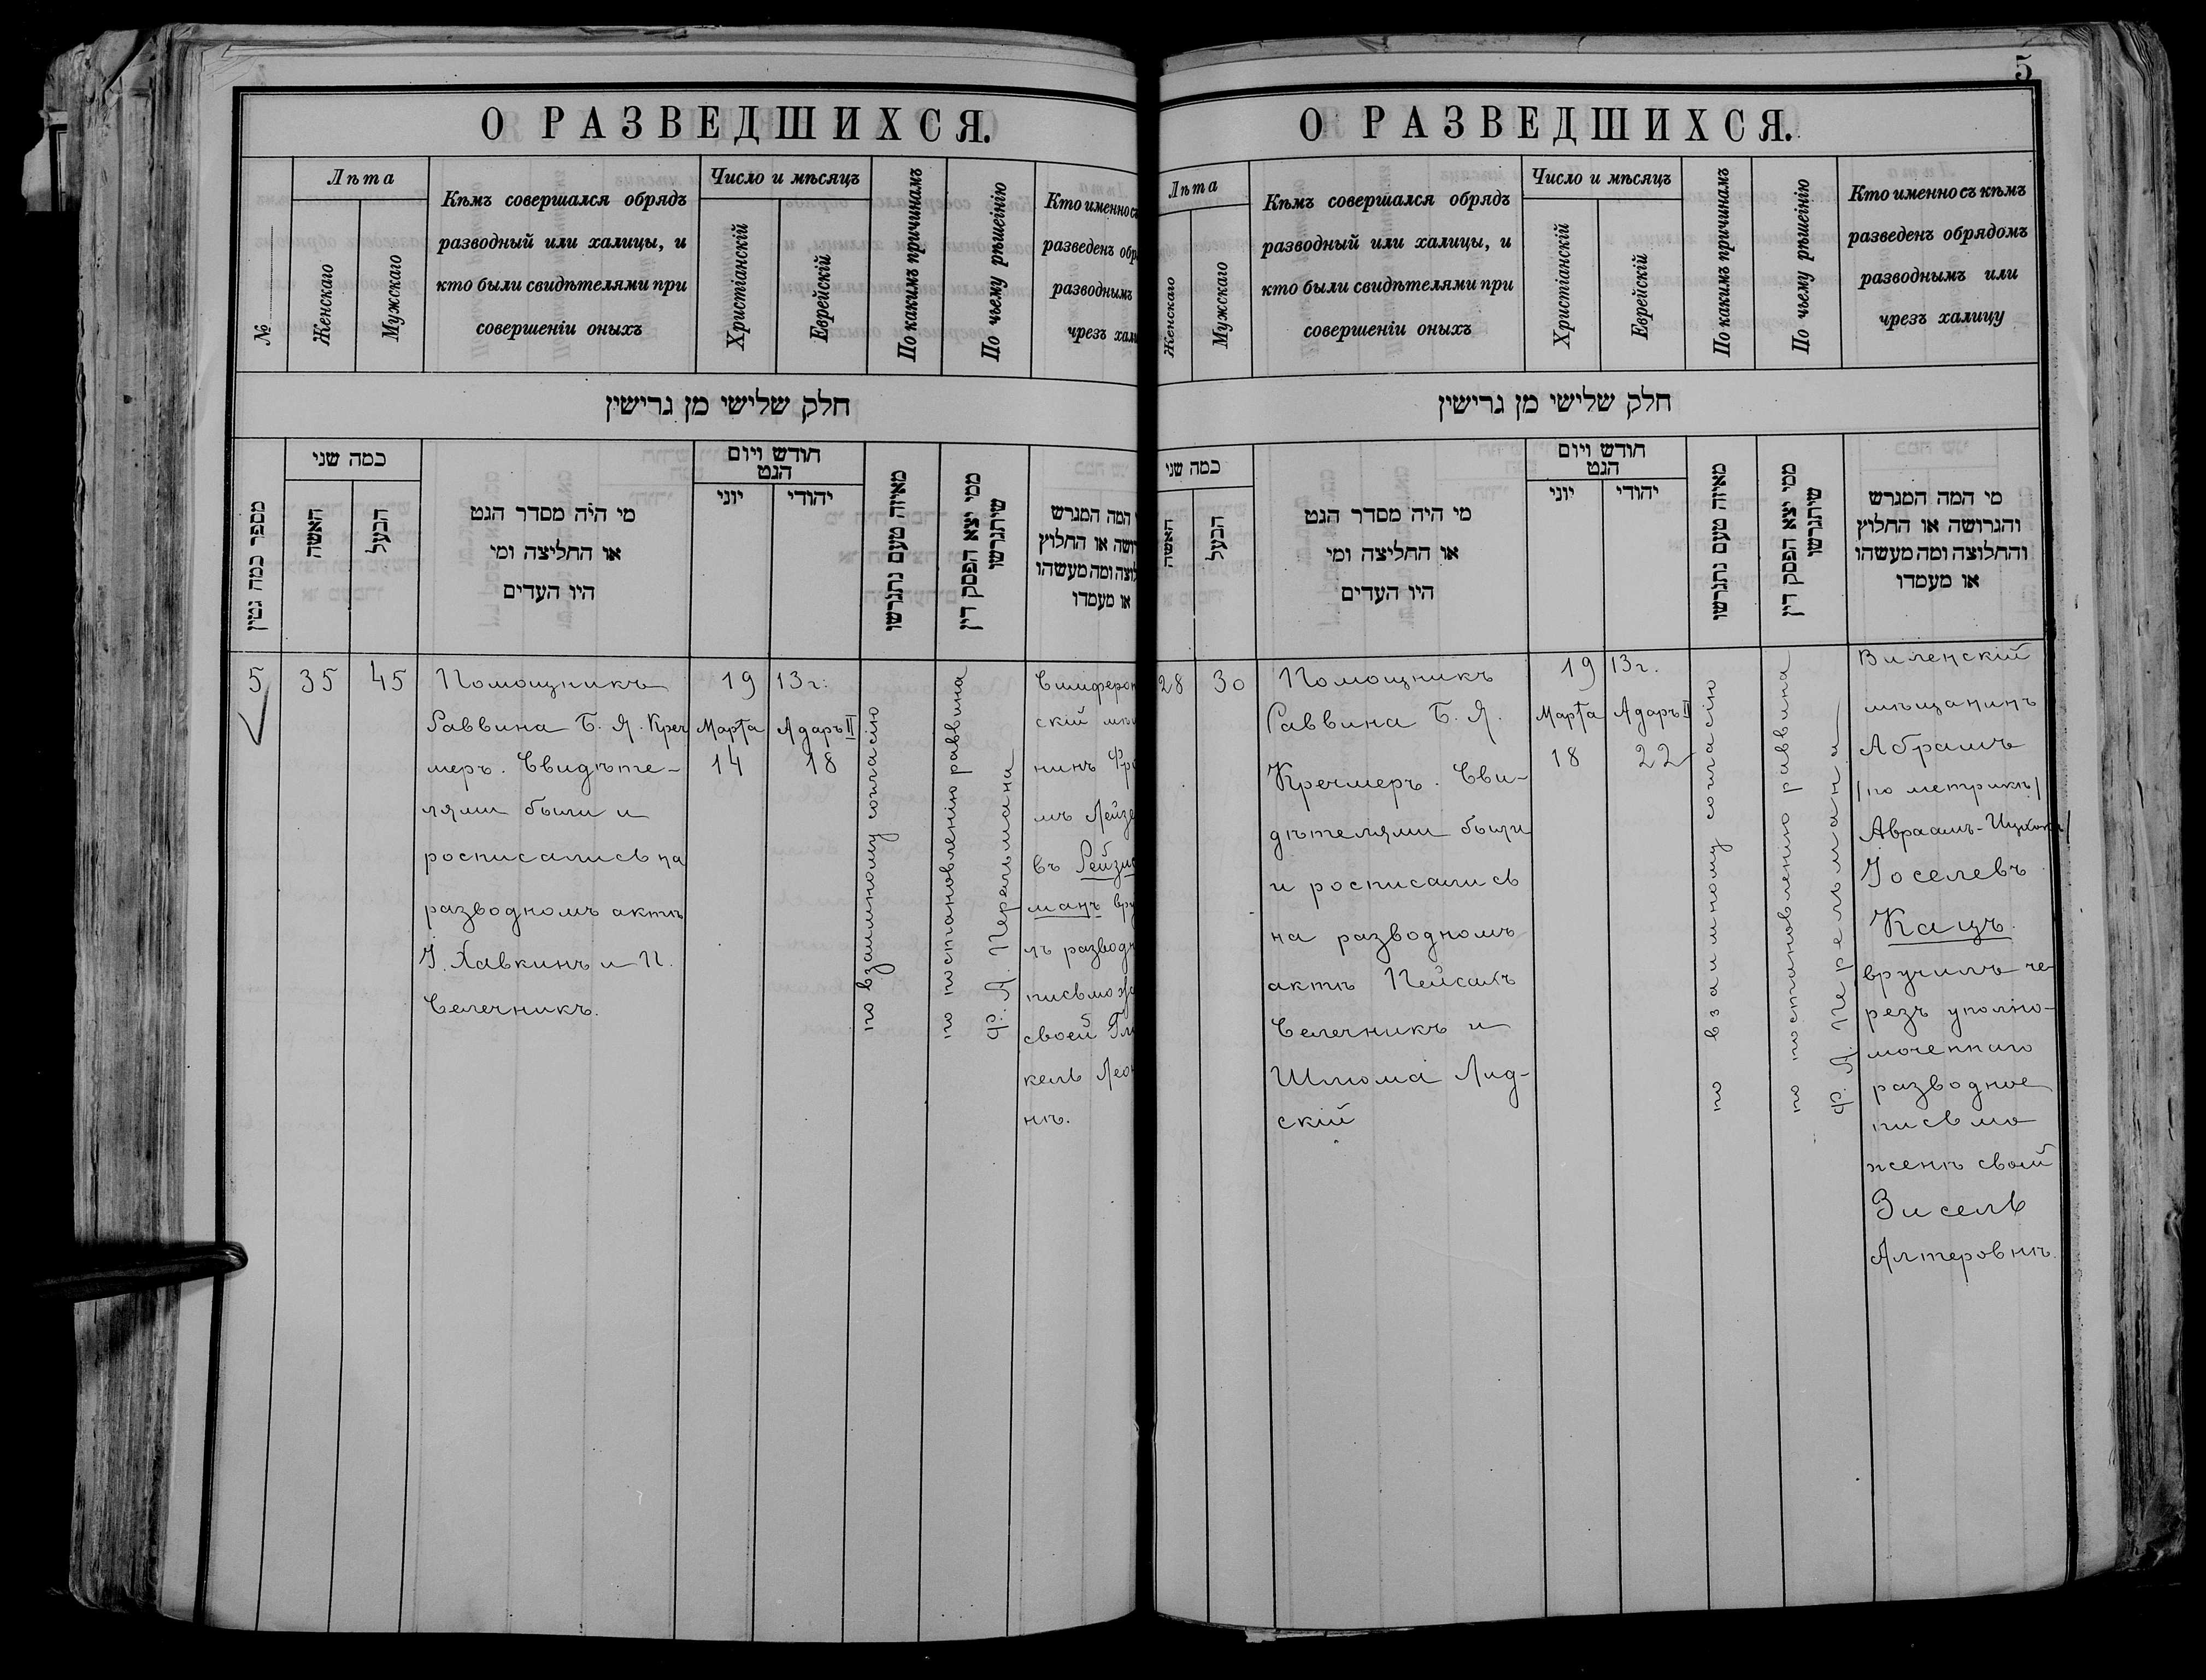 О РАЗВЕДШИХСЯ.
№
Лѣта
Женскаго
Мужскаго
Кѣмъ совершался обрядъ
разводный или халицы, и
кто были свидѣтелями при
совершеніи оныхъ
Число и мѣсяцъ
Христіанскій
Еврейскій
По какимъ причинамъ
По чьему рѣшеінію
Кто именно съ
разведенъ обр
разводнымъ
чрезъ хали
חלק שלישי מן גרישין
מספר כמה גטין
כמה שני
האשה
הבעל
מי היה מסדר הגט
או החליצה ומי
היו העדים
חודש ויום
הגט
יוני
יהודי
מאיזה טעם נתגרשו
ממי יצא הפסק דין
שיתגרשו
המה המגרש
ושה או החלוץ
לוצה ומה מעשהו
או מעמדו
5
35
45
Помощникъ
Раввина Б. Я. Креч
меръ. Свидѣте-
лями были и
росписались на
разводномъ актѣ
І. Хавкинъ и П.
Селечникъ.
19 13г.
Марта
14
Адаръ II
18
по взаимному согласію
по постановленію раввина
Ф. А. Перельмана
Симфероп
скій мѣ
нинъ Фро
мъ Лейзе
въ Рейзи
манъ вру
лъ разводн
письмо же
своей Гл
кель Леон
нѣ.
5
О РАЗВЕДШИХСЯ.
Лѣта
Женскаго
Мужскаго
Кѣмъ совершался обрядъ
разводный или халицы, и
кто были свидѣтелями при
совершеніи оныхъ
Число и мѣсяцъ
Христіанскій
Еврейскій
По какимъ причинамъ
По чьему рѣшеінію
Кто именно съ кѣмъ
разведенъ обрядомъ
разводнымъ или
чрезъ халицу
חלק שלישי מן גרישין
כמה שני
האשה
הבעל
מי היה מסדר הגט
או החליצה ומי
היו העדים
חודש ויום
הגט
יוני
יהודי
מאיזה טעם נתגרשו
ממי יצא הפסק דין
שיתגרשו
מי המה המגרש
והגרושה או החלוץ
והחלוצה ומה מעשהו
או מעמדו
28
30
Помощникъ
Раввина Б. Я.
Кречмеръ. Сви-
дѣтелями были
и росписались
на разводномъ
актѣ Пейсахъ
Селечникъ и
Шлиома Лид-
скій
19 13г.
Марта
18
Адаръ II
22
по взаимному согласію
по постановленію раввина
Ф. А. Перельмана
Виленскій
мѣщанинъ
Абрамъ
/по метрикѣ/
Авраамъ-Ицхокъ/
Іоселевъ
Кацъ.
вручилъ че-
резъ уполно-
моченнаго
разводное
письмо
женѣ своей
Зисель
Алтеровнѣ.